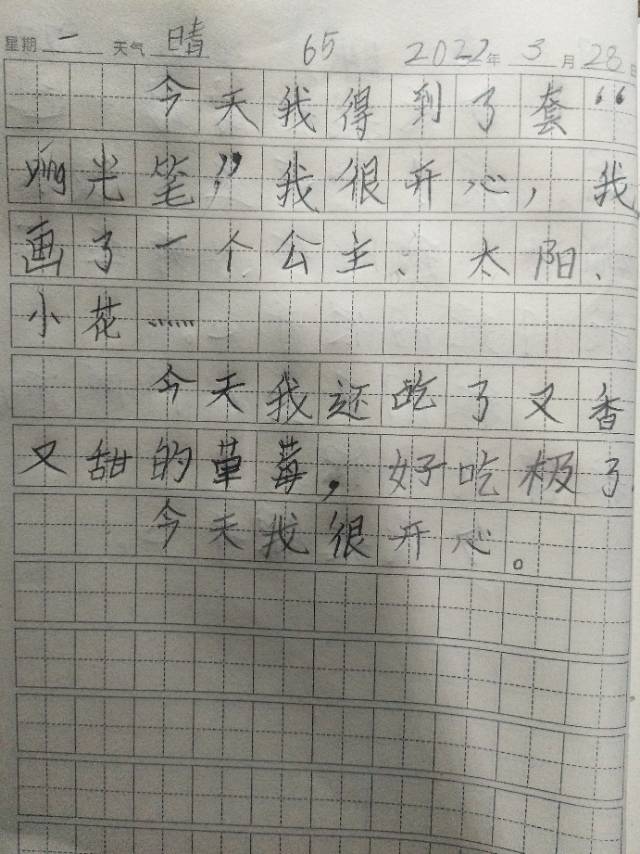 星期 一 天气 晴 65 2022年 3月 28日
今天我得到了套“
yíng光笔”我很开心，我
画了一个公主、太阳、
小花……
今天我还吃了又香
又甜的草莓，好吃极了
今天我很开心。